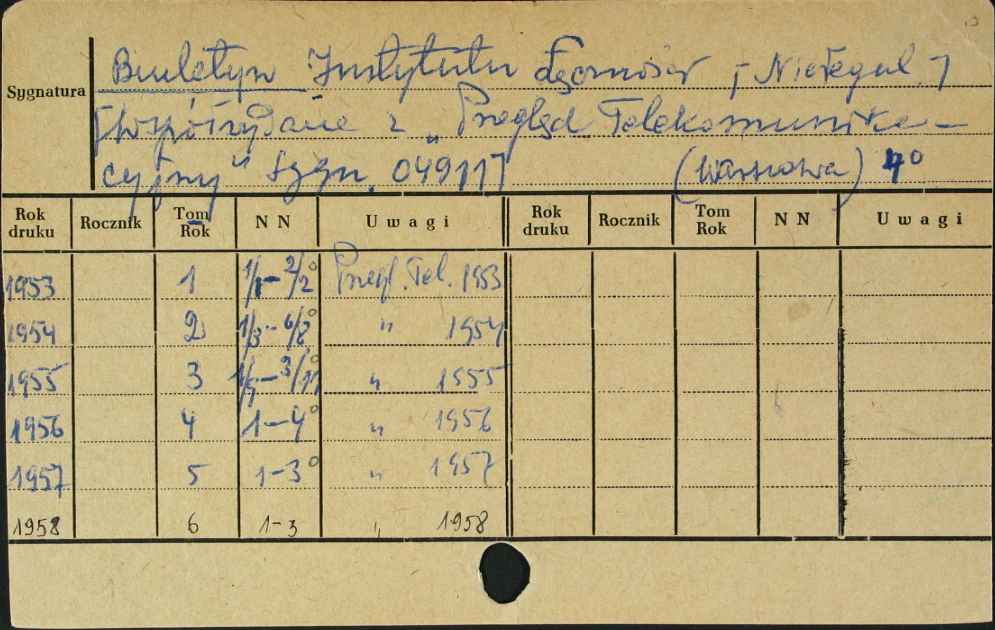 Sygnatura
Biuletyn Instytutu Łączności [Nieregul.]
[Współwydane z „Przegląd Telekomunika-
cyjny” Sygn. 049117] (Warszawa) 4°
Rok druku Rocznik Tom Rok NN Uwagi Rok druku Rocznik Tom Rok NN Uwagi
1953 1 1/1-2/2° Przegl. Tel. 1953
1954 2 1/3-6/8° " 1954
1955 3 1/9-3/11° " 1955
1956 4 1-4° " 1956
1957 5 1-3° " 1957
1958 6 1-3 " 1958